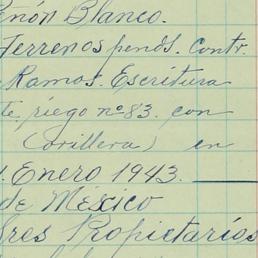 eñón Blanco.
Terrenos pends. contr.
Ramos. Escritura
te. riego nº 83. con
(orillera) en
Enero 1943.
de México
res Propietarios